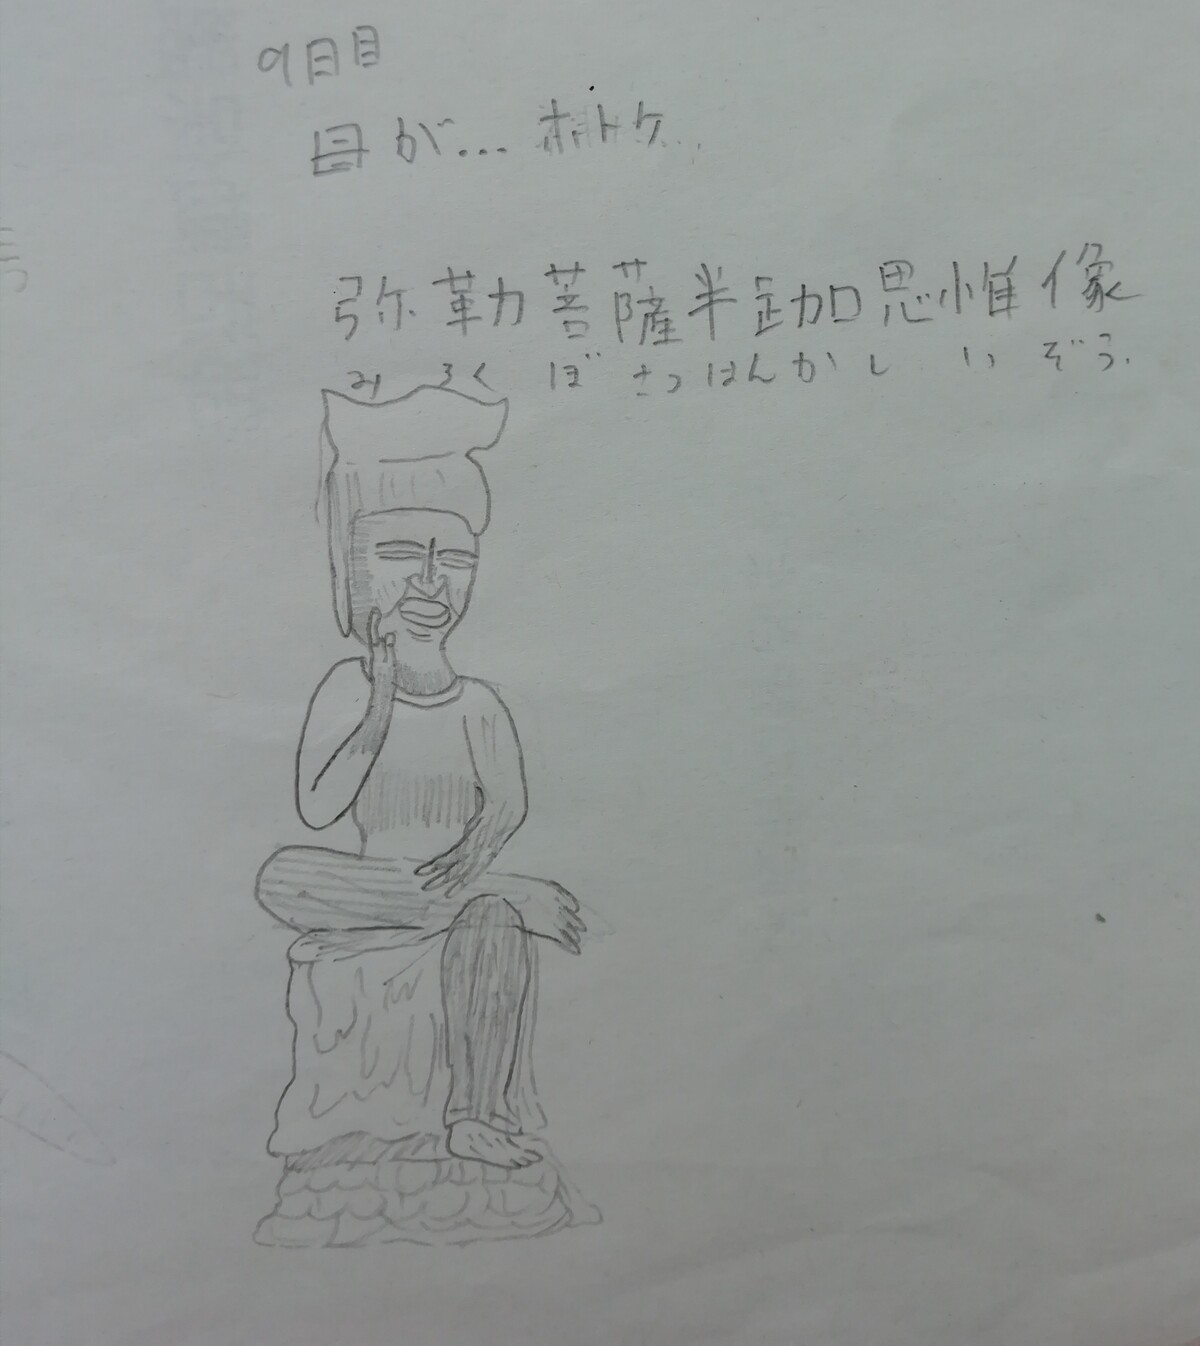 9日目
母が… ホトケ…
弥勒菩薩半跏思惟像
みろくぼさつはんかしいぞう.